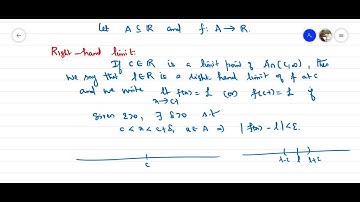 Let A ⊆ R and f: A → R.
Right-hand limit:
If c ∈ R is a limit point of A ∩ (c, ∞), then
we say that l ∈ R is a right hand limit of f at c
and we write lt f(x) = L (or) f(c+) = L if
x→c+
Given ε>0, ∃ δ>0 s.t
c < x < c+δ, x ∈ A ⇒ | f(x) - l | < ε.
c
l-ε l l+ε